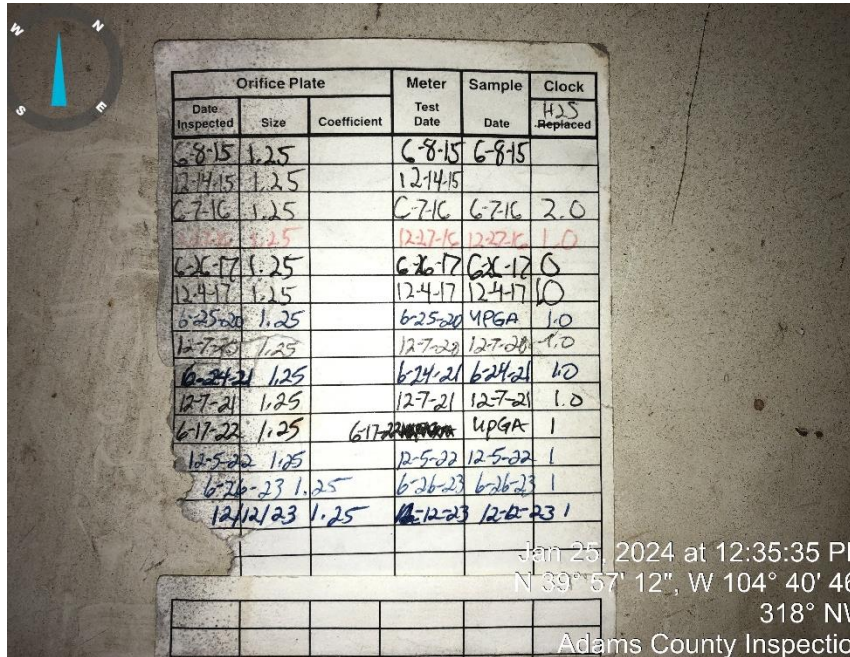 W N
S E
Orifice Plate Meter Sample Clock
Date Inspected Size Coefficient Test Date Date H2S Replaced
6-8-15 1.25 6-8-15 6-8-15
12-14-15 1.25 12-14-15
6-7-16 1.25 6-7-16 6-7-16 2.0
1.25 12-27-16 12-27-16 1.0
6-26-17 1.25 6-26-17 6-26-17 0
12-4-17 1.25 12-4-17 12-4-17 10
6-25-20 1.25 6-25-20 UPGA 1.0
12-7-20 1.25 12-7-20 12-7-20 1.0
6-24-21 1.25 6-24-21 6-24-21 1.0
12-7-21 1.25 12-7-21 12-7-21 1.0
6-17-22 1.25 6-17-22 UPGA 1
12-5-22 1.25 12-5-22 12-5-22 1
6-26-23 1.25 6-26-23 6-26-23 1
12/12/23 1.25 12-12-23 12-12-23 1
Jan 25, 2024 at 12:35:35 P
N 39° 57' 12", W 104° 40' 46
318° NW
Adams County Inspectio